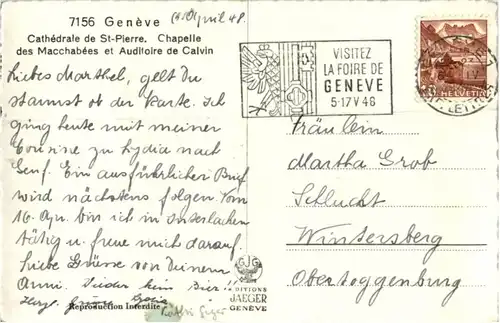 7156 Genève
April 48.
Cathédrale de St-Pierre. Chapelle
des Macchabées et Auditoire de Calvin
Liebes Marthel, gelt Du
staunst ob der Karte. Ich
ging heute mit meiner
Cousine zu Lydia nach
Genf. Ein ausführlicher Brief
wird nächstens folgen. Vom
16. Apr. bin ich in Interlaken
tätig u. freue mich darauf.
Liebe Grüsse von Deinem
Anni. Leider kein Bier!!
Herzl. Grüsse
Reproduction Interdite
Rösli Giger
VISITEZ
LA FOIRE DE
GENÈVE
5-17 V 46
HELVETIA
GJG
EDITIONS
JAEGER
GENÈVE
Fräulein
Martha Grob
Schlucht
Wintersberg
Obertoggenburg